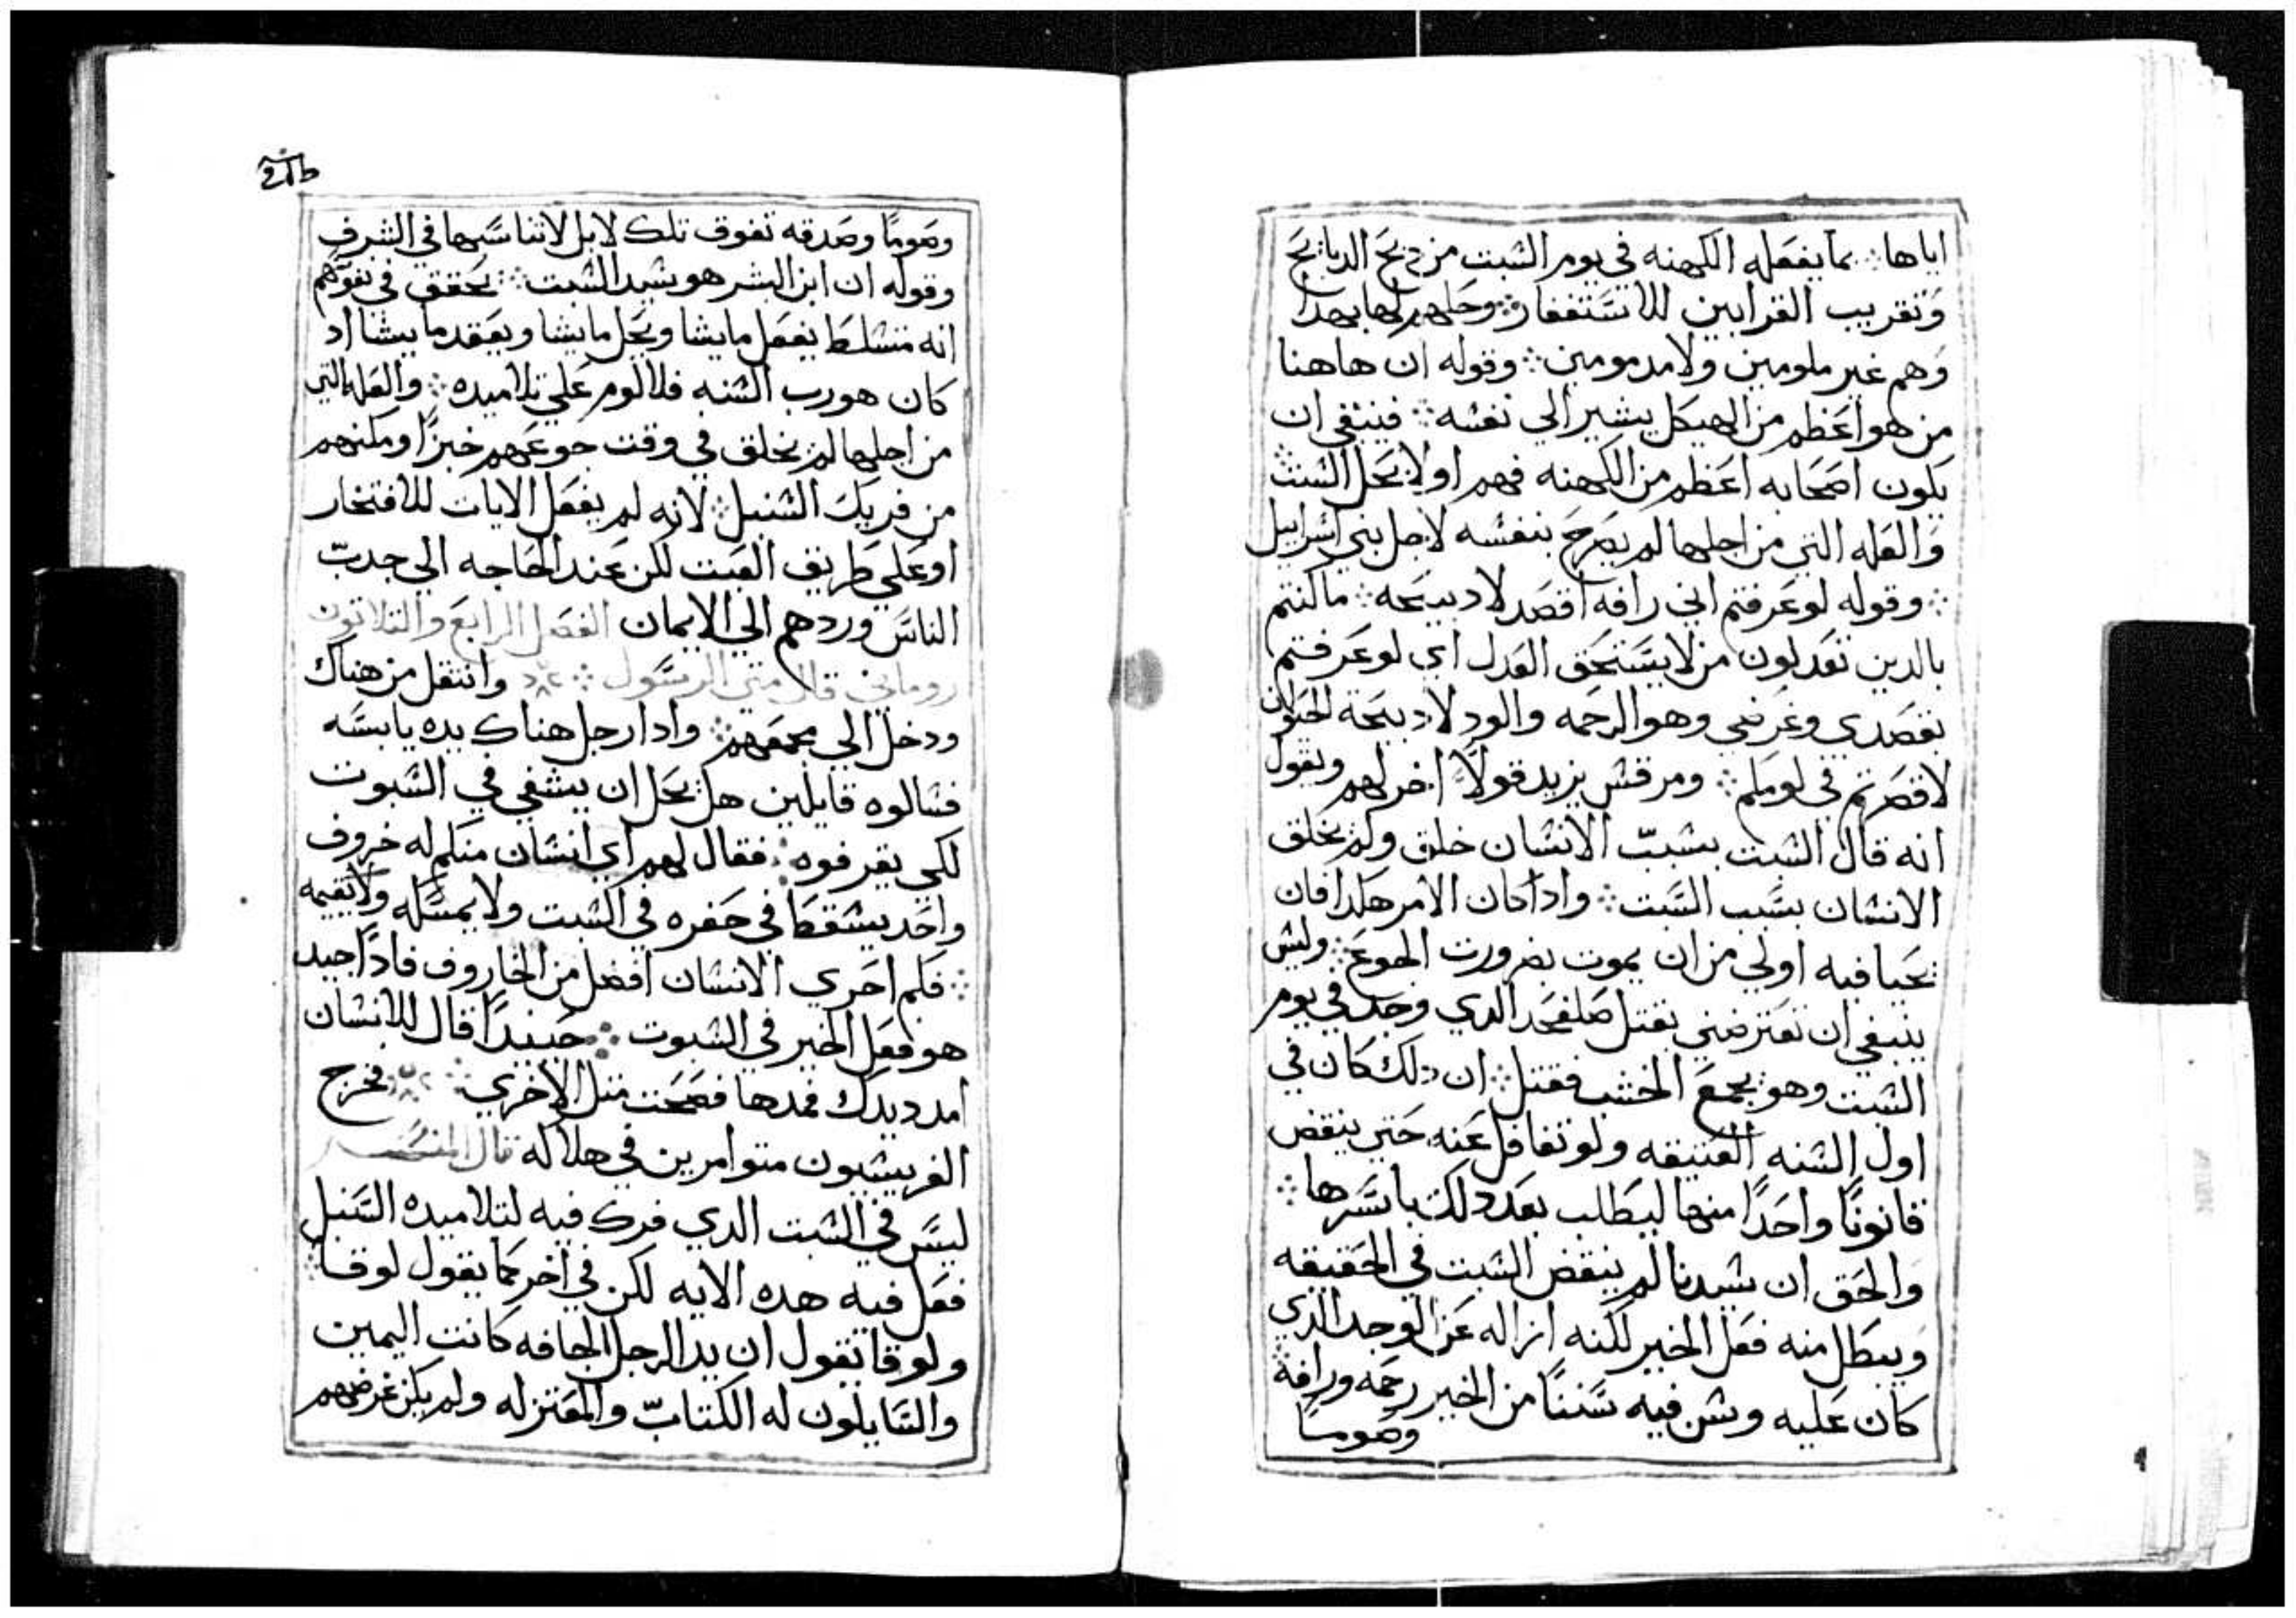 اياها ؞ بما يفعله الكهنه في يوم السبت من دبح الدبايح
وتقريب القرابين للاستغفار ؞ وحلهم لها بهدا
وهم غير ملومين ولا مدمومين ؞ وقوله ان هاهنا
من هو اعظم من الهيكل يشير الي نفسه ؞ فينبغي ان
يكون اصحابه اعظم من الكهنه فهم اولا بحل السبت ؞
والعله التي من اجلها لم يصرح بنفسه لاجل بني اسراييل
؞ وقوله لو عرفتم اني رافه اقصد لا دبيحه ؞ ما كنتم
بالدين تعدلون من لا يستحق العدل اي لو عرفتم
بقصدي وغرضي وهو الرحمه والود لا دبيحة الحيوان
لاقصرتم في لومكم ؞ ومرقس يزيد قولاً اخر لهم ويقول
انه قال السبت بسببّ الانسان خلق ولم يخلق
الانسان بسبب السبت ؞ وادا كان الامر هكدا فان
نحيا فيه اولي من ان يموت بضرورت الجوع ؞ وليس
ينبغي ان تعترضني بقتل صلفحد الدي وجد في يوم
السبت وهو يجمع الخشب فقتل ؞ ان دلك كان في
اول السنه العتيقه ولو تغافل عنه حتي ينقض
قانونًا واحدًا منها لبطلت بعد دلك باسرها ؞
والحق ان سيدنا لم ينقض السبت في الحقيقه
ويبطل منه فعل الخير لكنه ازاله عن الوجد الدي
كان عليه وسن فيه سننًا من الخير رحمه ورافة ؞
وصومًا
وصومًا وصدقه تفوق تلك لا بل لا تناسبها في الشرف
وقوله ان ابن البشر هو سيد السبت ؞ يحقق في نفوسهم
انه متسلط يفعل ما يشا ويحل ما يشا ويعقد ما يشا اد
كان هو رب السنه فلا لوم علي تلاميده ؞ والعله التي
من اجلها لم يخلق في وقت جوعهم خبزًا ومكنهم
من فريك السنبل ؞ لانه لم يفعل الايات للافتخار
او علي طريق العبت لكن عند الحاجه الي جدبّ
الناس وردهم الي الايمان الفصل الرابع والتلاتون
روماني قال متي الرسول ؞ وانتقل من هناك
ودخل الي مجمعهم ؞ وادا رجل هناك يده يابسه
فسالوه قايلين هل يحل ان يشفي في السبوت
لكي يقرفوه ؞ فقال لهم اي انسان منكم له خروف
واحد يسقط في حفره في السبت ولا يمسكه ولا يقيمه
؞ فكم احري الانسان افضل من الخاروف فادًا جيد
هو فعل الخير في السبوت ؞ حينيدًا قال للانسان
امدد يدك فمدها فصحت متل الاخري ؞ فخرج
الفريسيون متوامرين في هلاكه قال المفسر
ليس في السبت الدي فرك فيه لتلاميده السنبل
فعل فيه هده الايه لكن في اخر كما يقول لوقا ؞
ولوقا يقول ان يد الرجل الجافه كانت اليمين
والسايلون له الكتابّ والمعتزله ولم يكن غرضهم